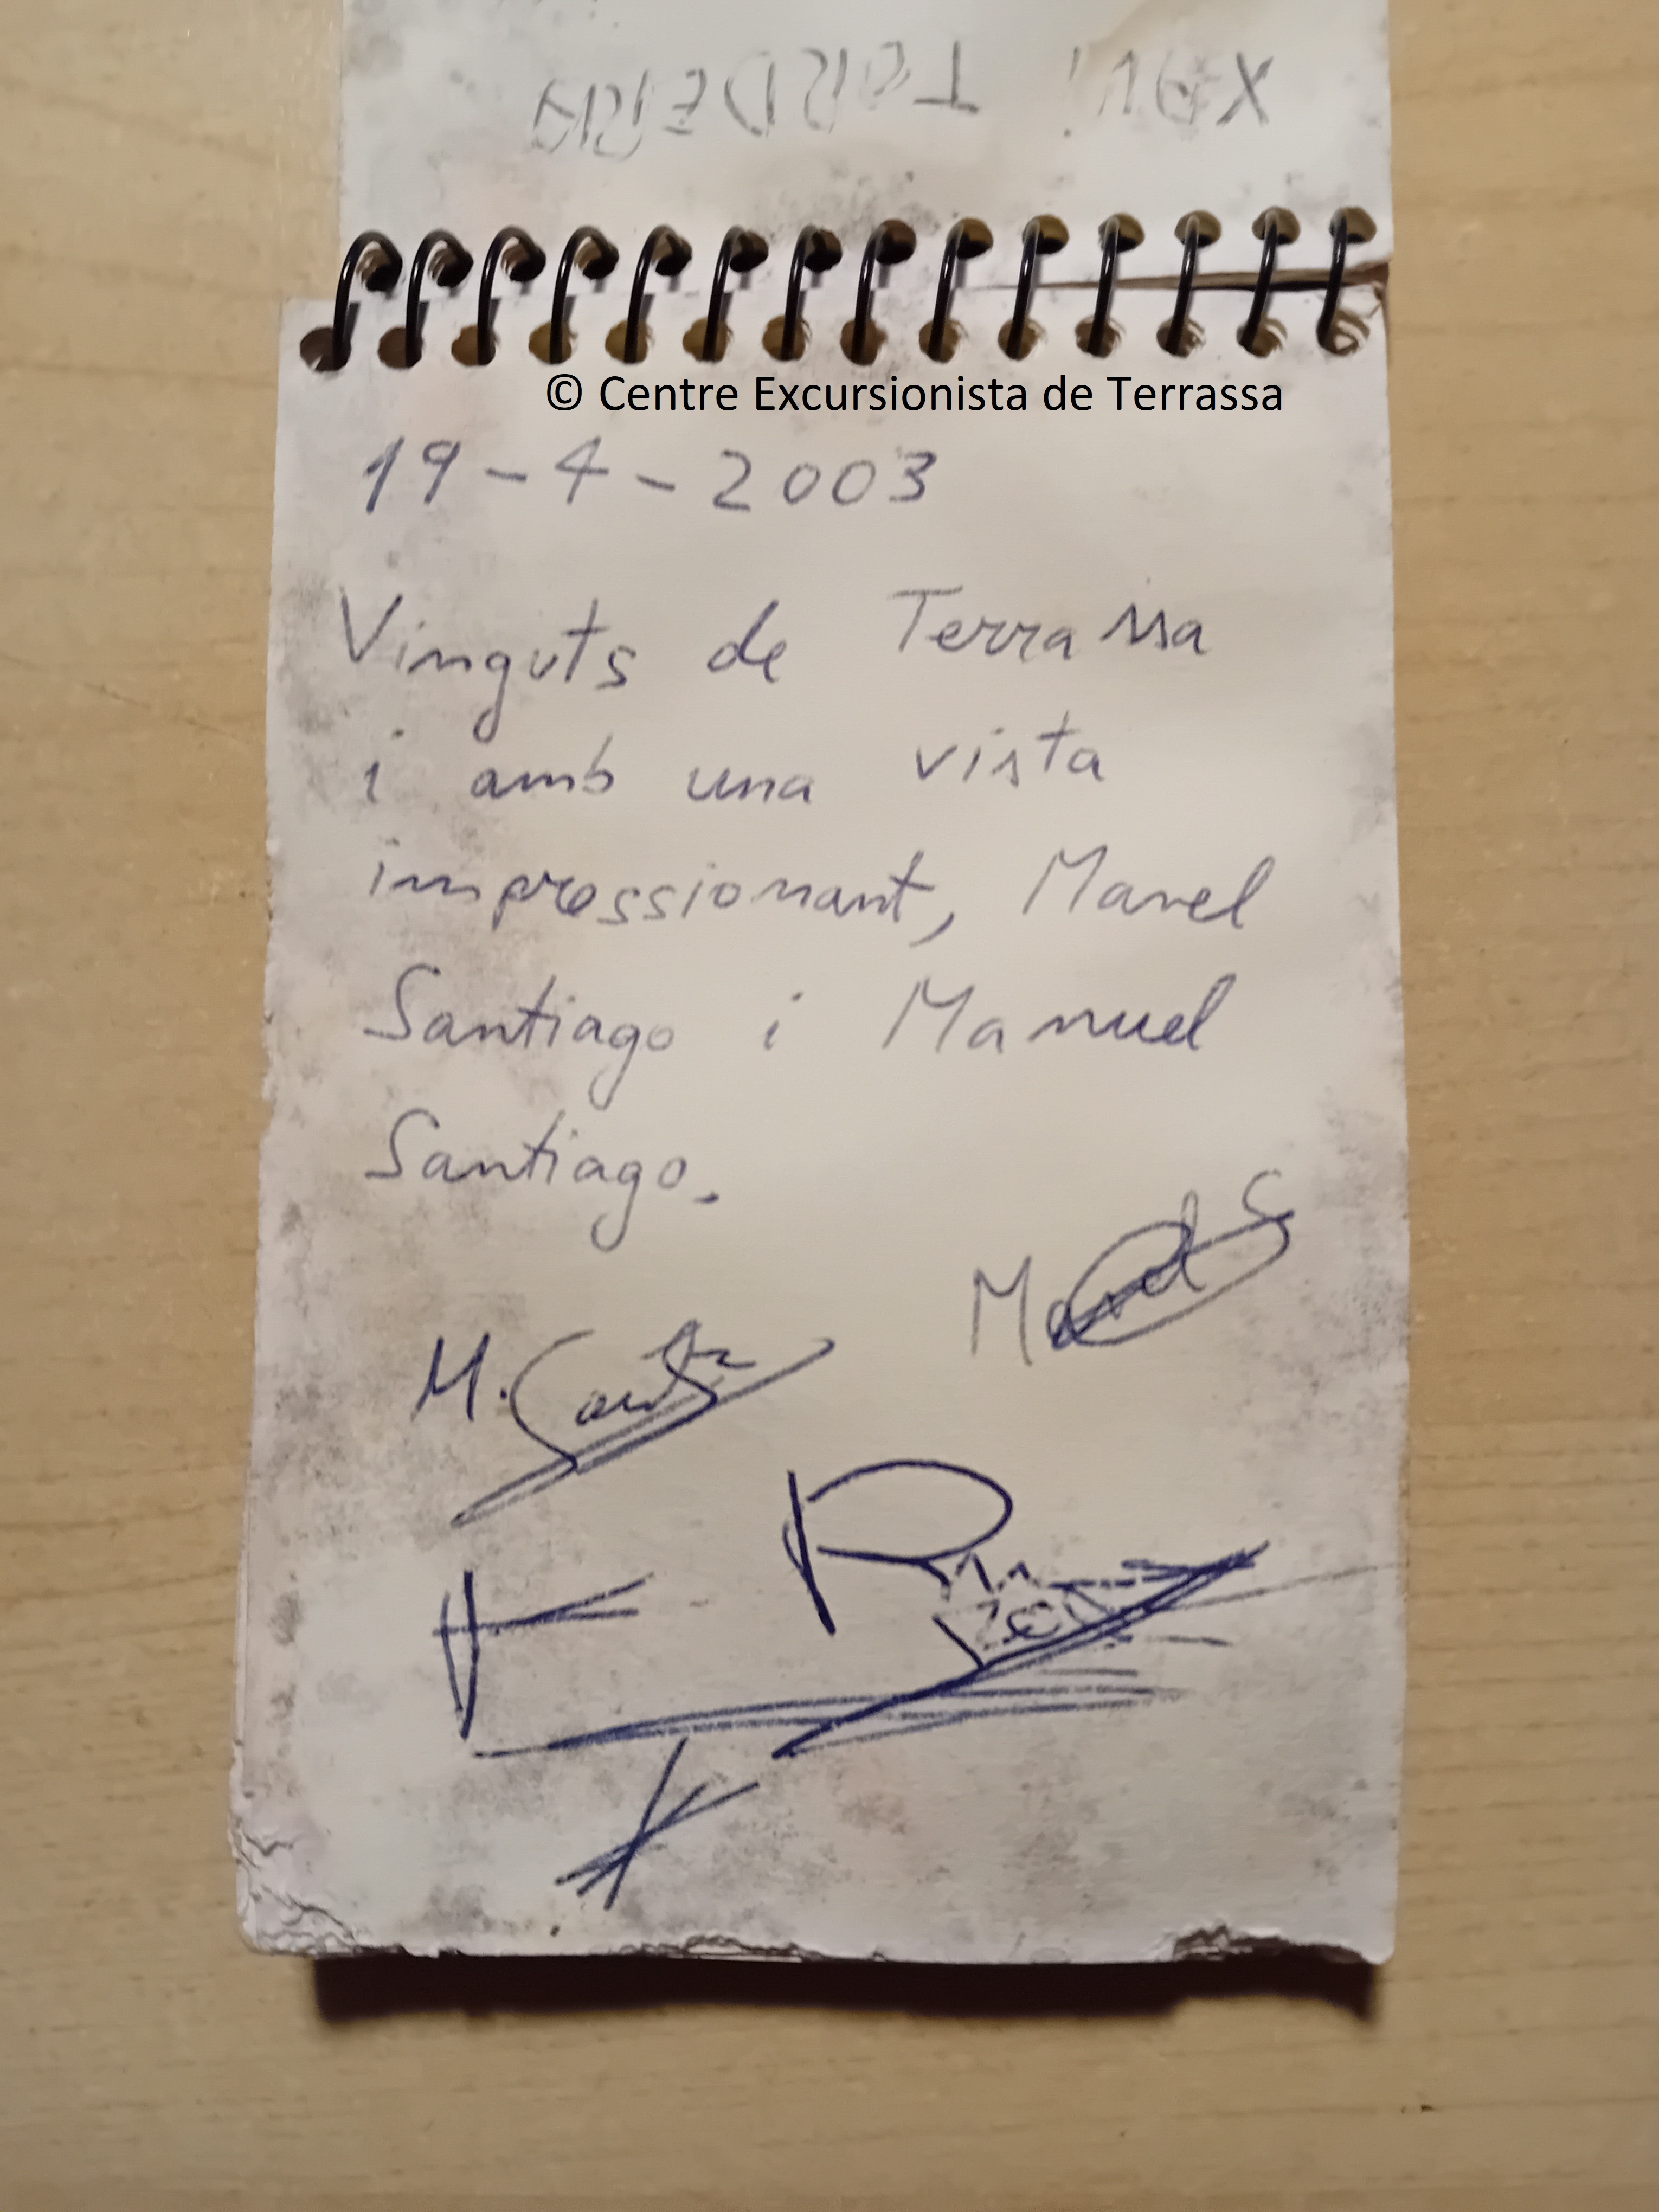 © Centre Excursionista de Terrassa
19-4-2003
Vinguts de Terrassa
i amb una vista
impressionant, Manel
Santiago i Manuel
Santiago.
Manel S
M.